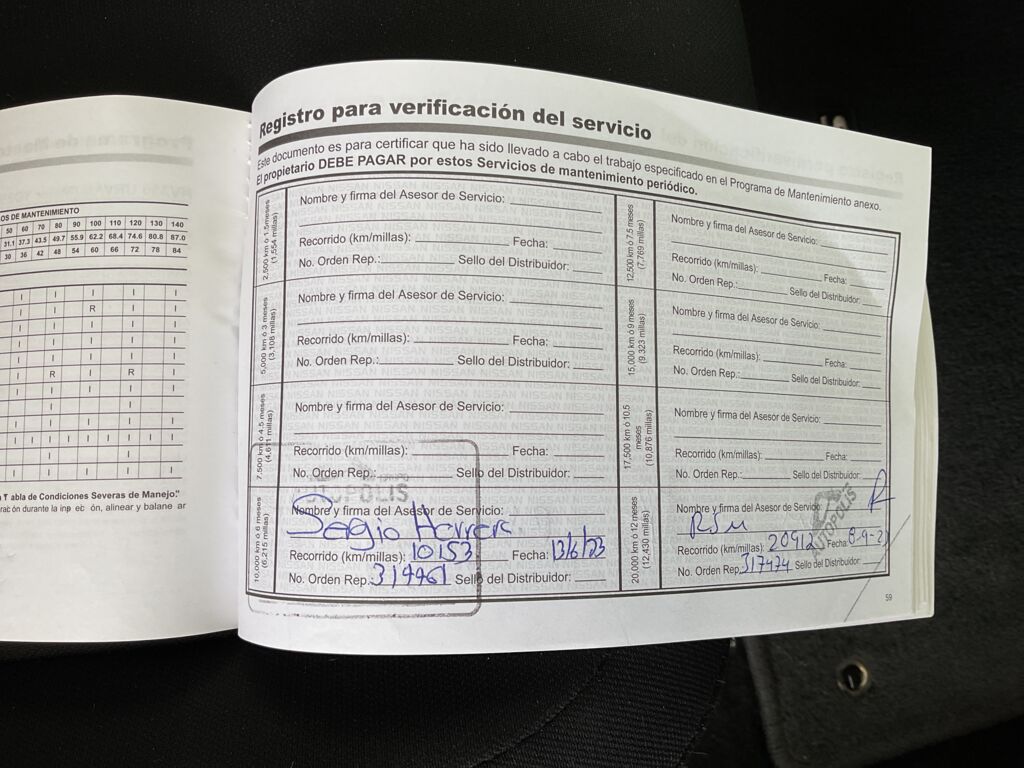 OS DE MANTENIMIENTO
50 60 70 80 90 100 110 120 130 140
31.1 37.3 43.5 49.7 55.9 62.2 68.4 74.6 80.8 87.0
30 36 42 48 54 60 66 72 78 84
I I I I I
I I R I I
I I I I I
I I I I I
I I I I I
I R I R I
I I I I I
I I I
I I I I I
I I I I I I I I I I
I I I I I
Tabla de Condiciones Severas de Manejo."
Registro para verificación del servicio
Este documento es para certificar que ha sido llevado a cabo el trabajo especificado en el Programa de Mantenimiento anexo.
El propietario DEBE PAGAR por estos Servicios de mantenimiento periódico.
2,500 km ó 1.5 meses
(1,554 millas)
Nombre y firma del Asesor de Servicio:
Recorrido (km/millas): Fecha:
No. Orden Rep.: Sello del Distribuidor:
5,000 km ó 3 meses
(3,108 millas)
Nombre y firma del Asesor de Servicio:
Recorrido (km/millas): Fecha:
No. Orden Rep.: Sello del Distribuidor:
7,500 km ó 4.5 meses
(4,611 millas)
Nombre y firma del Asesor de Servicio:
Recorrido (km/millas): Fecha:
No. Orden Rep.: Sello del Distribuidor:
10,000 km ó 6 meses
(6,215 millas)
AUTOPOLIS
Nombre y firma del Asesor de Servicio:
Sergio Herrera
Recorrido (km/millas): 10153 Fecha: 13/6/23
No. Orden Rep. Sello del Distribuidor:
12,500 km ó 7.5 meses
(7,769 millas)
Nombre y firma del Asesor de Servicio:
Recorrido (km/millas): Fecha:
No. Orden Rep.: Sello del Distribuidor:
15,000 km ó 9 meses
(9,323 millas)
Nombre y firma del Asesor de Servicio:
Recorrido (km/millas): Fecha:
No. Orden Rep.: Sello del Distribuidor:
17,500 km ó 10.5
meses
(10,876 millas)
Nombre y firma del Asesor de Servicio:
Recorrido (km/millas): Fecha:
No. Orden Rep.: Sello del Distribuidor:
20,000 km ó 12 meses
(12,430 millas)
Nombre y firma del Asesor de Servicio:
AUTOPOLIS
Recorrido (km/millas): 20912 Fecha:
No. Orden Rep. 317474 Sello del Distribuidor:
59